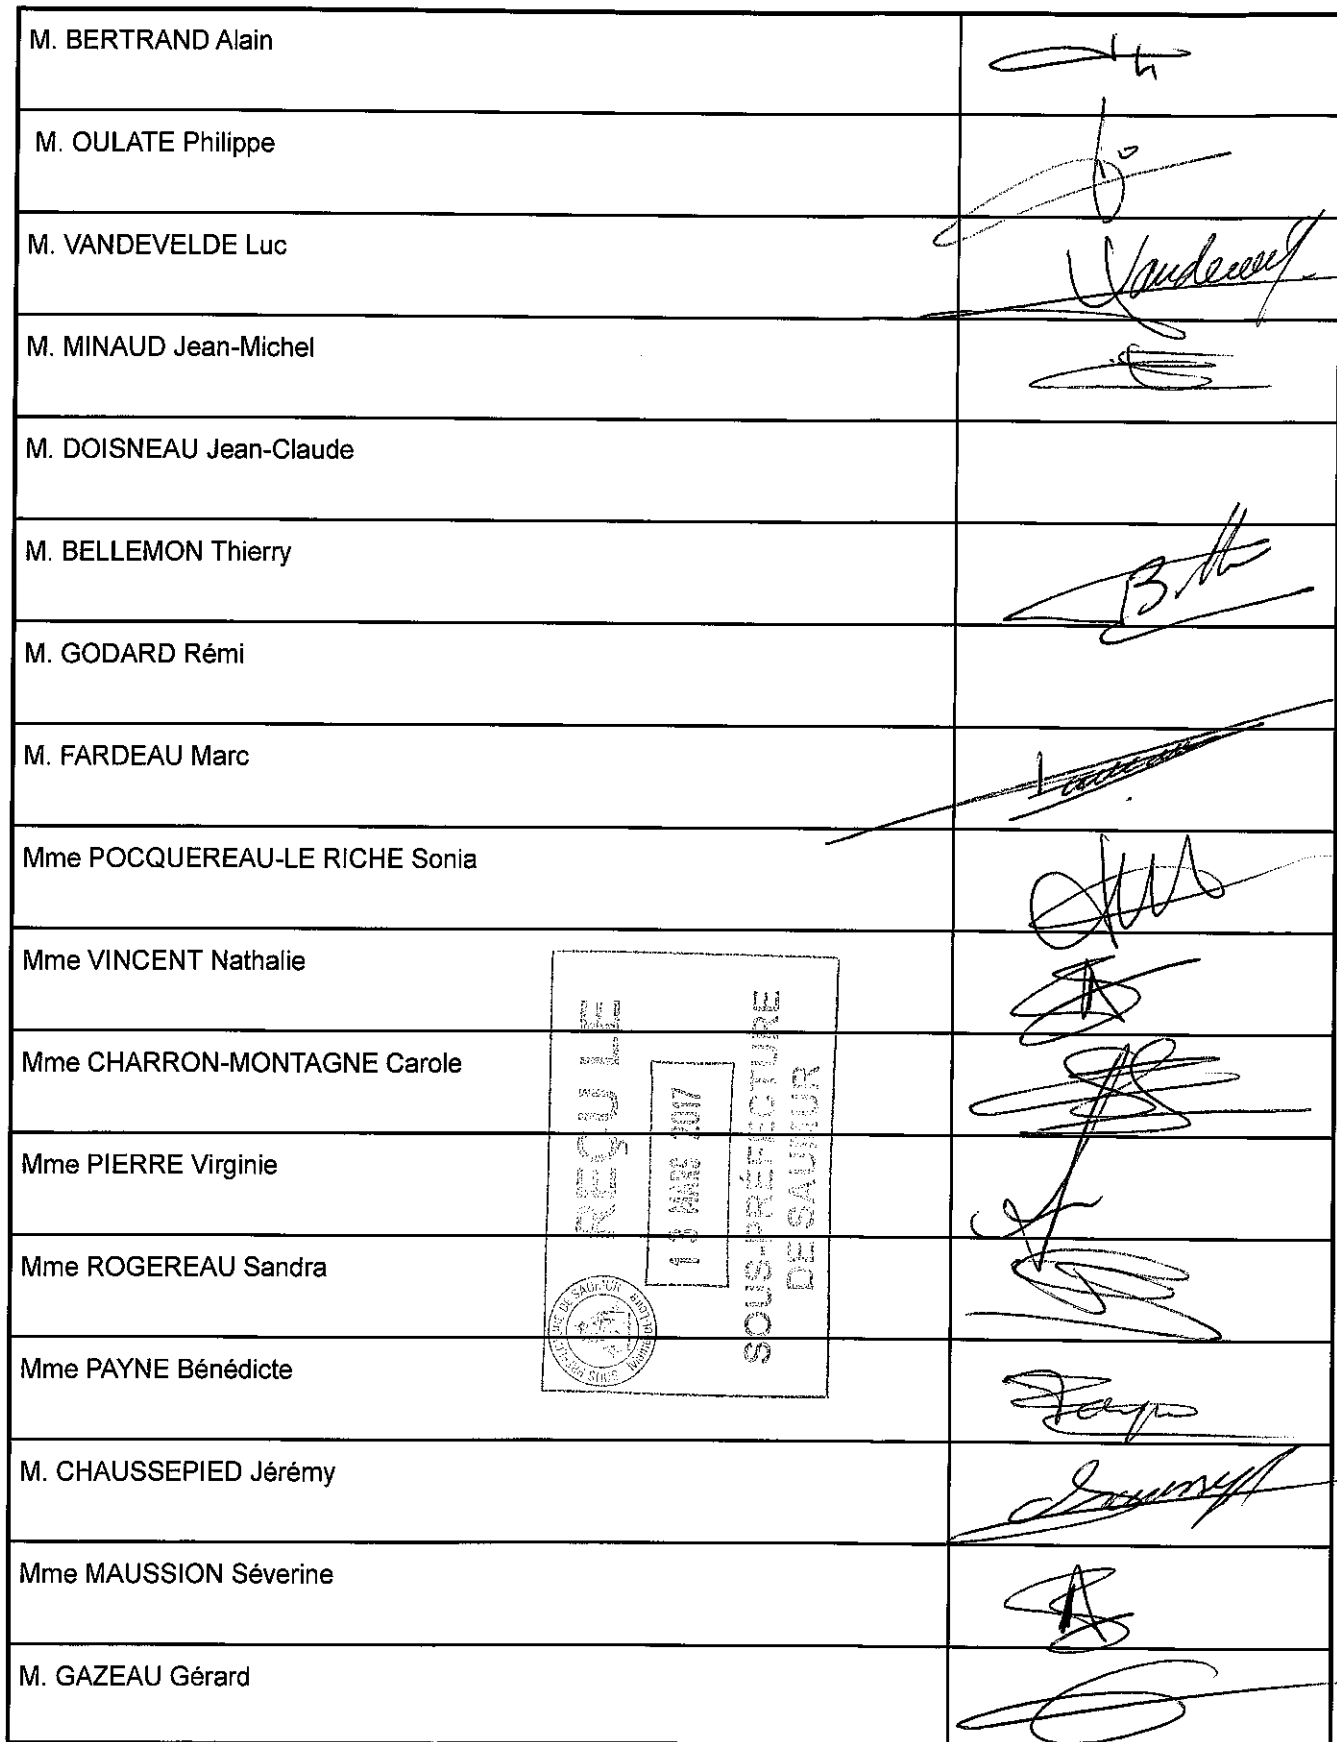 M. BERTRAND Alain
M. OULATE Philippe
M. VANDEVELDE Luc
M. MINAUD Jean-Michel
M. DOISNEAU Jean-Claude
M. BELLEMON Thierry
M. GODARD Rémi
M. FARDEAU Marc
Mme POCQUEREAU-LE RICHE Sonia
Mme VINCENT Nathalie
Mme CHARRON-MONTAGNE Carole
Mme PIERRE Virginie
Mme ROGEREAU Sandra
Mme PAYNE Bénédicte
M. CHAUSSEPIED Jérémy
Mme MAUSSION Séverine
M. GAZEAU Gérard
REÇU LE
13 MARS 2017
SOUS-PRÉFECTURE
DE SAUMUR